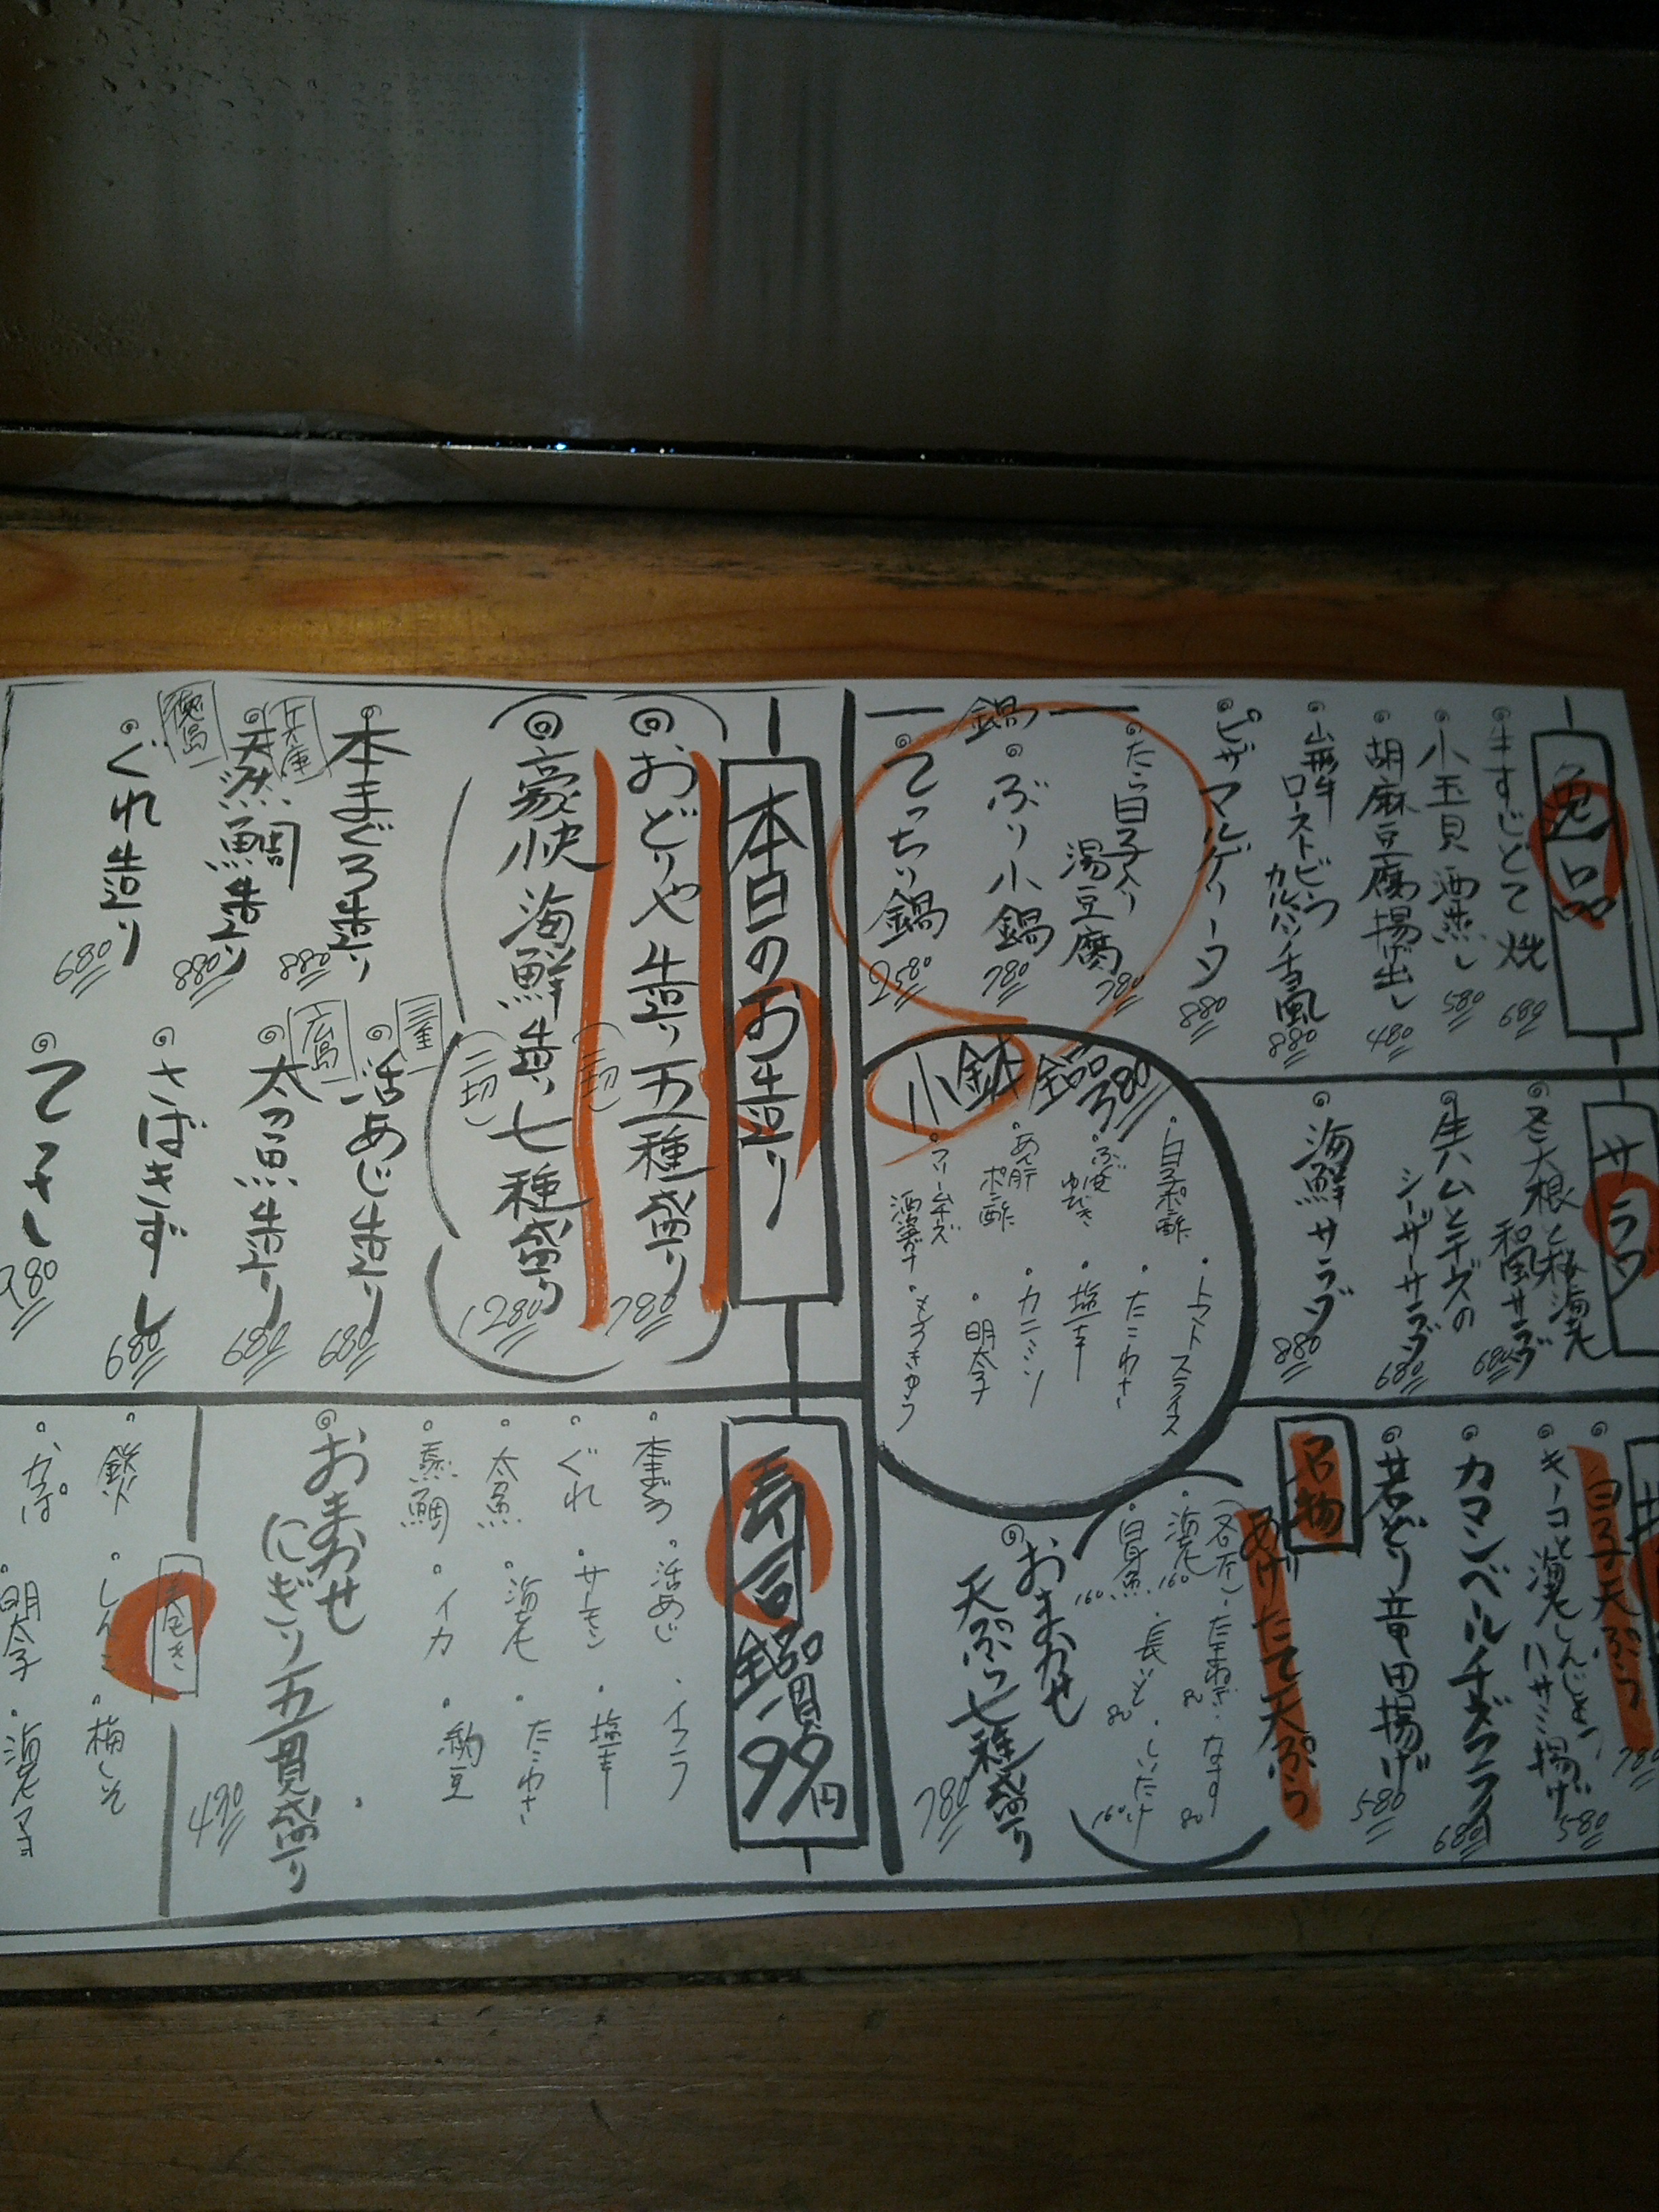 逸品
牛すじどて焼 680
小玉貝酒蒸し 580
胡麻豆腐揚げ出し 480
山形牛ローストビーフ
カルパッチョ風 880
ピザマルゲリータ 880
鍋
たら白子入り
湯豆腐 780
ぶり小鍋 780
てっちり鍋 2580
サラダ
大根と桜海老
和風サラダ 680
生ハムとチーズの
シーザーサラダ 680
海鮮サラダ 880
小鉢 全品380
白子ポン酢
トマトスライス
たこわさ
塩辛
あん肝
ポン酢
カニミソ
クリームチーズ
酒盗
明太子
もろきゅう
白子天ぷら 780
海老しんじょう
ハサミ揚げ 580
カマンベールチーズフライ 680
若どり竜田揚げ 580
名物
あげたて天ぷら
玉ねぎ
なす 80
海老 160
白身魚 160
長いも 80
しいたけ 160
おまかせ
天ぷら七種盛り 780
本日のお造り
おどりや造り五種盛り 780
(二切)
豪快海鮮造り七種盛り 1280
(二切)
本まぐろ造り 880
兵庫
天然鯛造り 880
徳島
ぐれ造り 680
三重
活あじ造り 680
広島
太刀魚造り 680
さばきずし 680
てっさ 980
寿司 全品一貫99円
本まぐろ
活あじ
イクラ
ぐれ
サーモン
塩辛
太刀魚
海老
たこわさ
真鯛
イカ
納豆
おまかせ
にぎり五貫盛り 490
巻き
鉄火
しんこ
梅しそ
かっぱ
明太子
海老マヨ